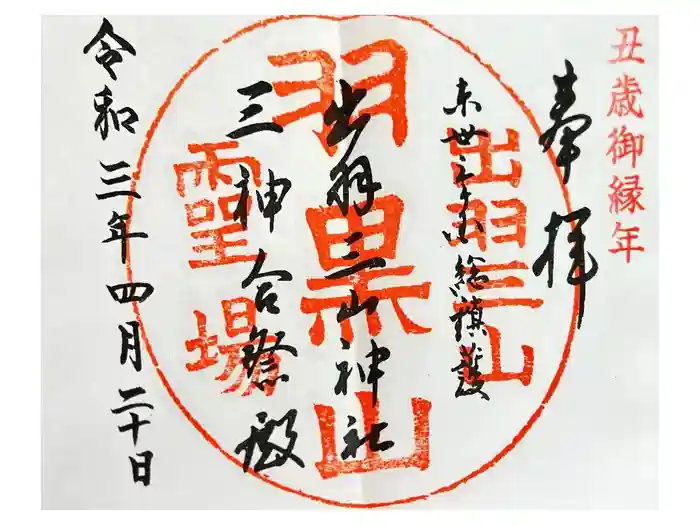 丑歳御縁年
奉拝
出羽三山
羽黒山
霊場
出羽三山神社
三神合祭殿
令和三年四月二十日